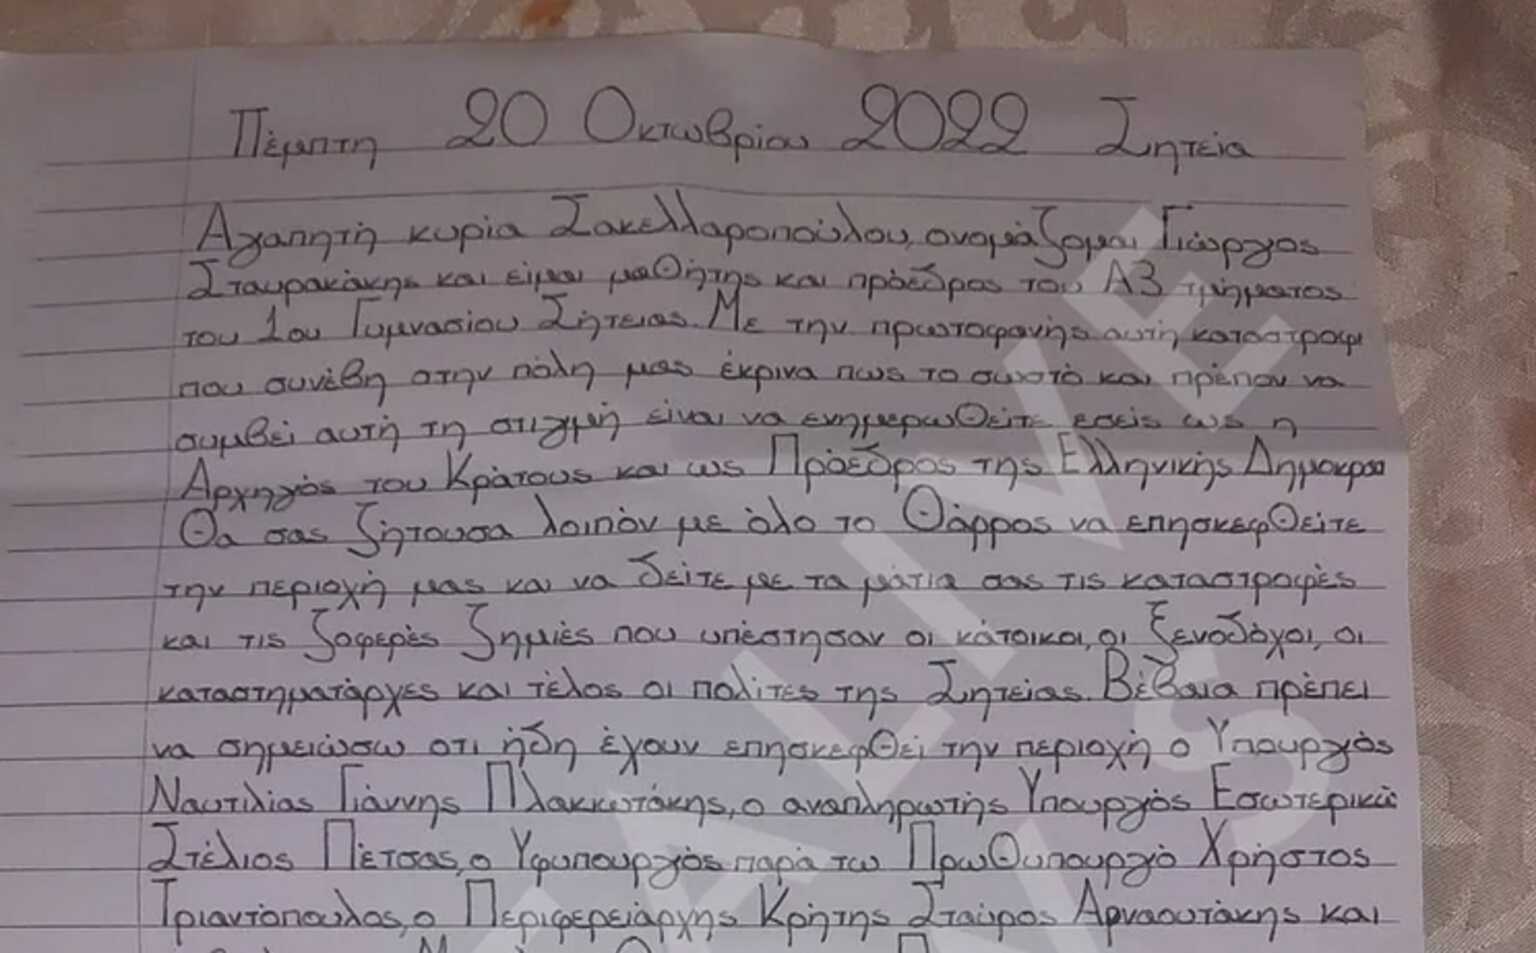 Πέμπτη 20 Οκτωβρίου 2022 Σητεία
Αγαπητή κυρία Σακελλαροπούλου, ονομάζομαι Γιώργος
Σταυρακάκης και είμαι μαθήτης και πρόεδρος του Α3 τμήματος
του 1ου Γυμνασίου Σήτειας. Με την πρωτοφανής αυτή καταστροφή
που συνέβη στην πόλη μας έκρινα πως το σωστό και πρέπον να
συμβεί αυτή τη στιγμή είναι να ενημερωθείτε εσείς ως η
Αρχηγός του Κράτους και ως Πρόεδρος της Ελληνικής Δημοκρα
Θα σας ζήτουσα λοιπόν με όλο το Θάρρος να επησκεφθείτε
την περιοχή μας και να δείτε με τα μάτια σας τις καταστροφές
και τις ζοφερές ζημιές που υπέστησαν οι κάτοικοι, οι ξενοδόχοι, οι
καταστηματάρχες και τέλος οι πολίτες της Σητείας. Βέβαια πρέπει
να σημειώσω οτι ήδη έχουν επησκεφθεί την περιοχή ο Υπουργός
Ναυτιλίας Γιάννης Πλακκωτάκης, ο αναπληρωτής Υπουργός Εσωτερικώ
Στέλιος Πέτσας, ο Υφυπουργός παρά τω Πρωθυπουργό Χρήστος
Τριαντόπουλος, ο Περιφερειάρχης Κρήτης Σταύρος Αρναουτάκης και
ALIVE